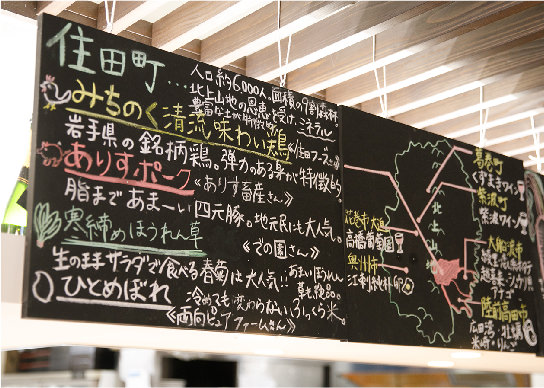 住田町…
人口約6,000人、面積の9割森林。
北上山地の恩恵を受け、ミネラル
豊富な水が特徴的。
みちのく清流味わい鶏
《住田フーズさん》
岩手県の銘柄鶏。弾力のある身が特徴的。
ありすポーク
《ありす畜産さん》
脂まであまーい四元豚。地元民にも大人気。
寒締めほうれん草
《での園さん》
生のままサラダで食べる春菊は大人気!!あまいほうれん
草も絶品。
ひとめぼれ
冷めても変わらないふっくら米。
《両向ピュアファームさん》
北上山地
花巻市大迫
高橋葡萄園
奥州市
江刺
葛巻町
くずまきワイン
紫波町
紫波ワイン
大船渡市
陸前高田市
広田湾
米崎りんご